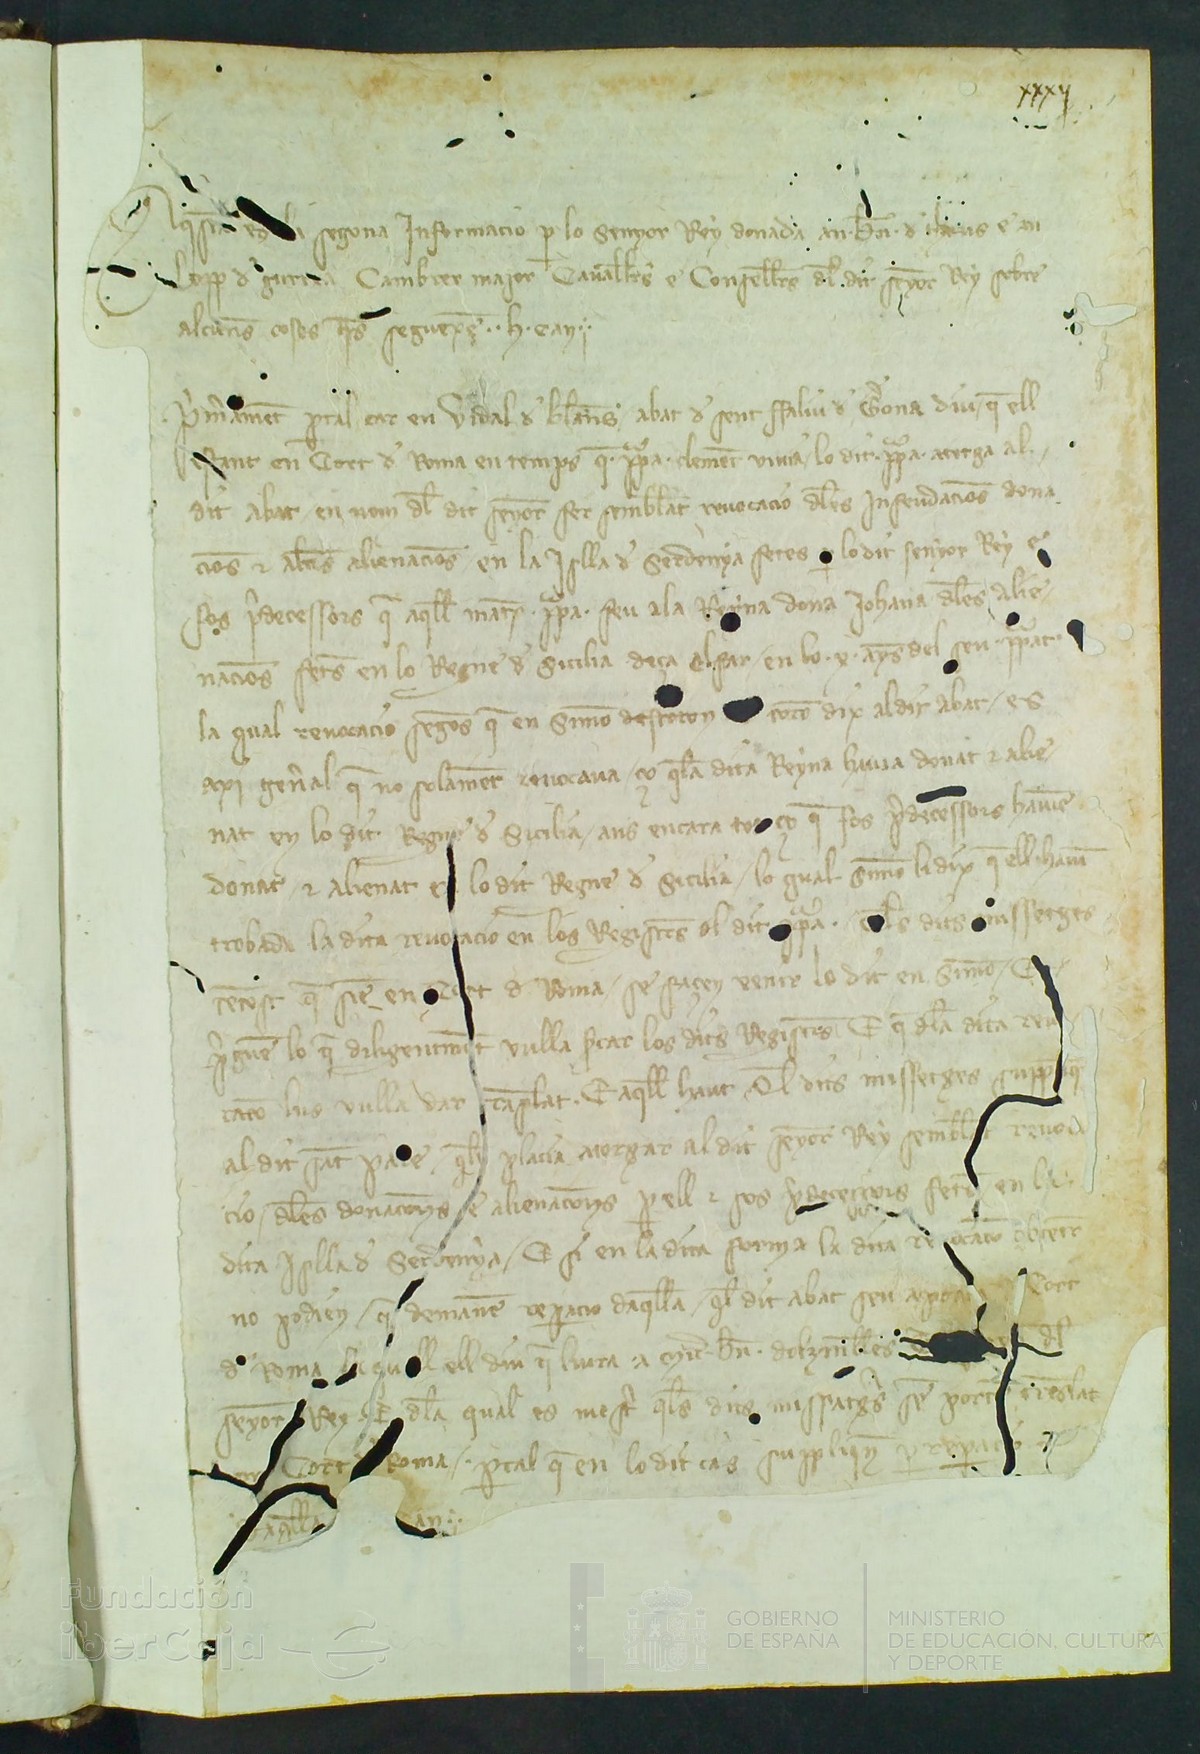 xxxij
Aquesta es la segona Informacio p lo Senyor Rey donada an. bn. d e an
Lopp d gurrea Cambrer major Cauallrs e Consellrs dl dit senyor Rey sobre
alcunes coses qs seguexen
Primament ptal car en Vidal d blanes abat d sent ffaliu d Gerona diu q ell
estant en Cort d Roma en temps q ppa clement viuia lo dit ppa atorga al
dit Abat en nom dl dit senyor fer semblat reuocacio dles Infeudacios dona
cios z altes alienacios en la Jslla d Serdenya fetes p lo dit senyor Rey e
sos pdecessors q aqll mateix ppa feu a la Reyna dona Johana dles alie
nacios fetes en lo Regne d Sicilia deça el far en lo x ays del seu ppat
la qual reuocacio segos q en Simo dix al dit abat es
axi genal q no solamet reuocaua ço qla dita Reyna hauia donat z alie
nat en lo dit Regne d Sicilia ans encara tot ço q sos pdecessors hauie
donat z alienat en lo dit Regne d Sicilia lo qual Simo li dix q ell hauia
trobada la dita reuocacio en los Registres dl dit ppa Els dits missatges
tantost q sie en Cort d Roma se facen venir lo dit en Simo E
preguen lo q diligentment vulla los dits Registres E q dla dita reuo
cacio lus vulla dar tanslat E aqll haut El dits missatges suppliq
al dit sant pare qli placia atorgar al dit senyor Rey semblat reuoca
cio dles donacions e alienacions p ell z sos pdecessors fetes en la
dita Jslla d Serdenya E si en la dita forma la dita reuocacio obtenir
no podien q demanen repacio daqlla ql dit abat sen aporta Cort
d Roma la qual ell diu q liura a bn. dl
senyor Rey E dla qual es mest qls dits missatges se porten translat
en Cort d Roma ptal q en lo dit cas suppliqn p repacio
daqlla
Fundación
iberCaja
GOBIERNO
DE ESPAÑA
MINISTERIO
DE EDUCACIÓN, CULTURA
Y DEPORTE